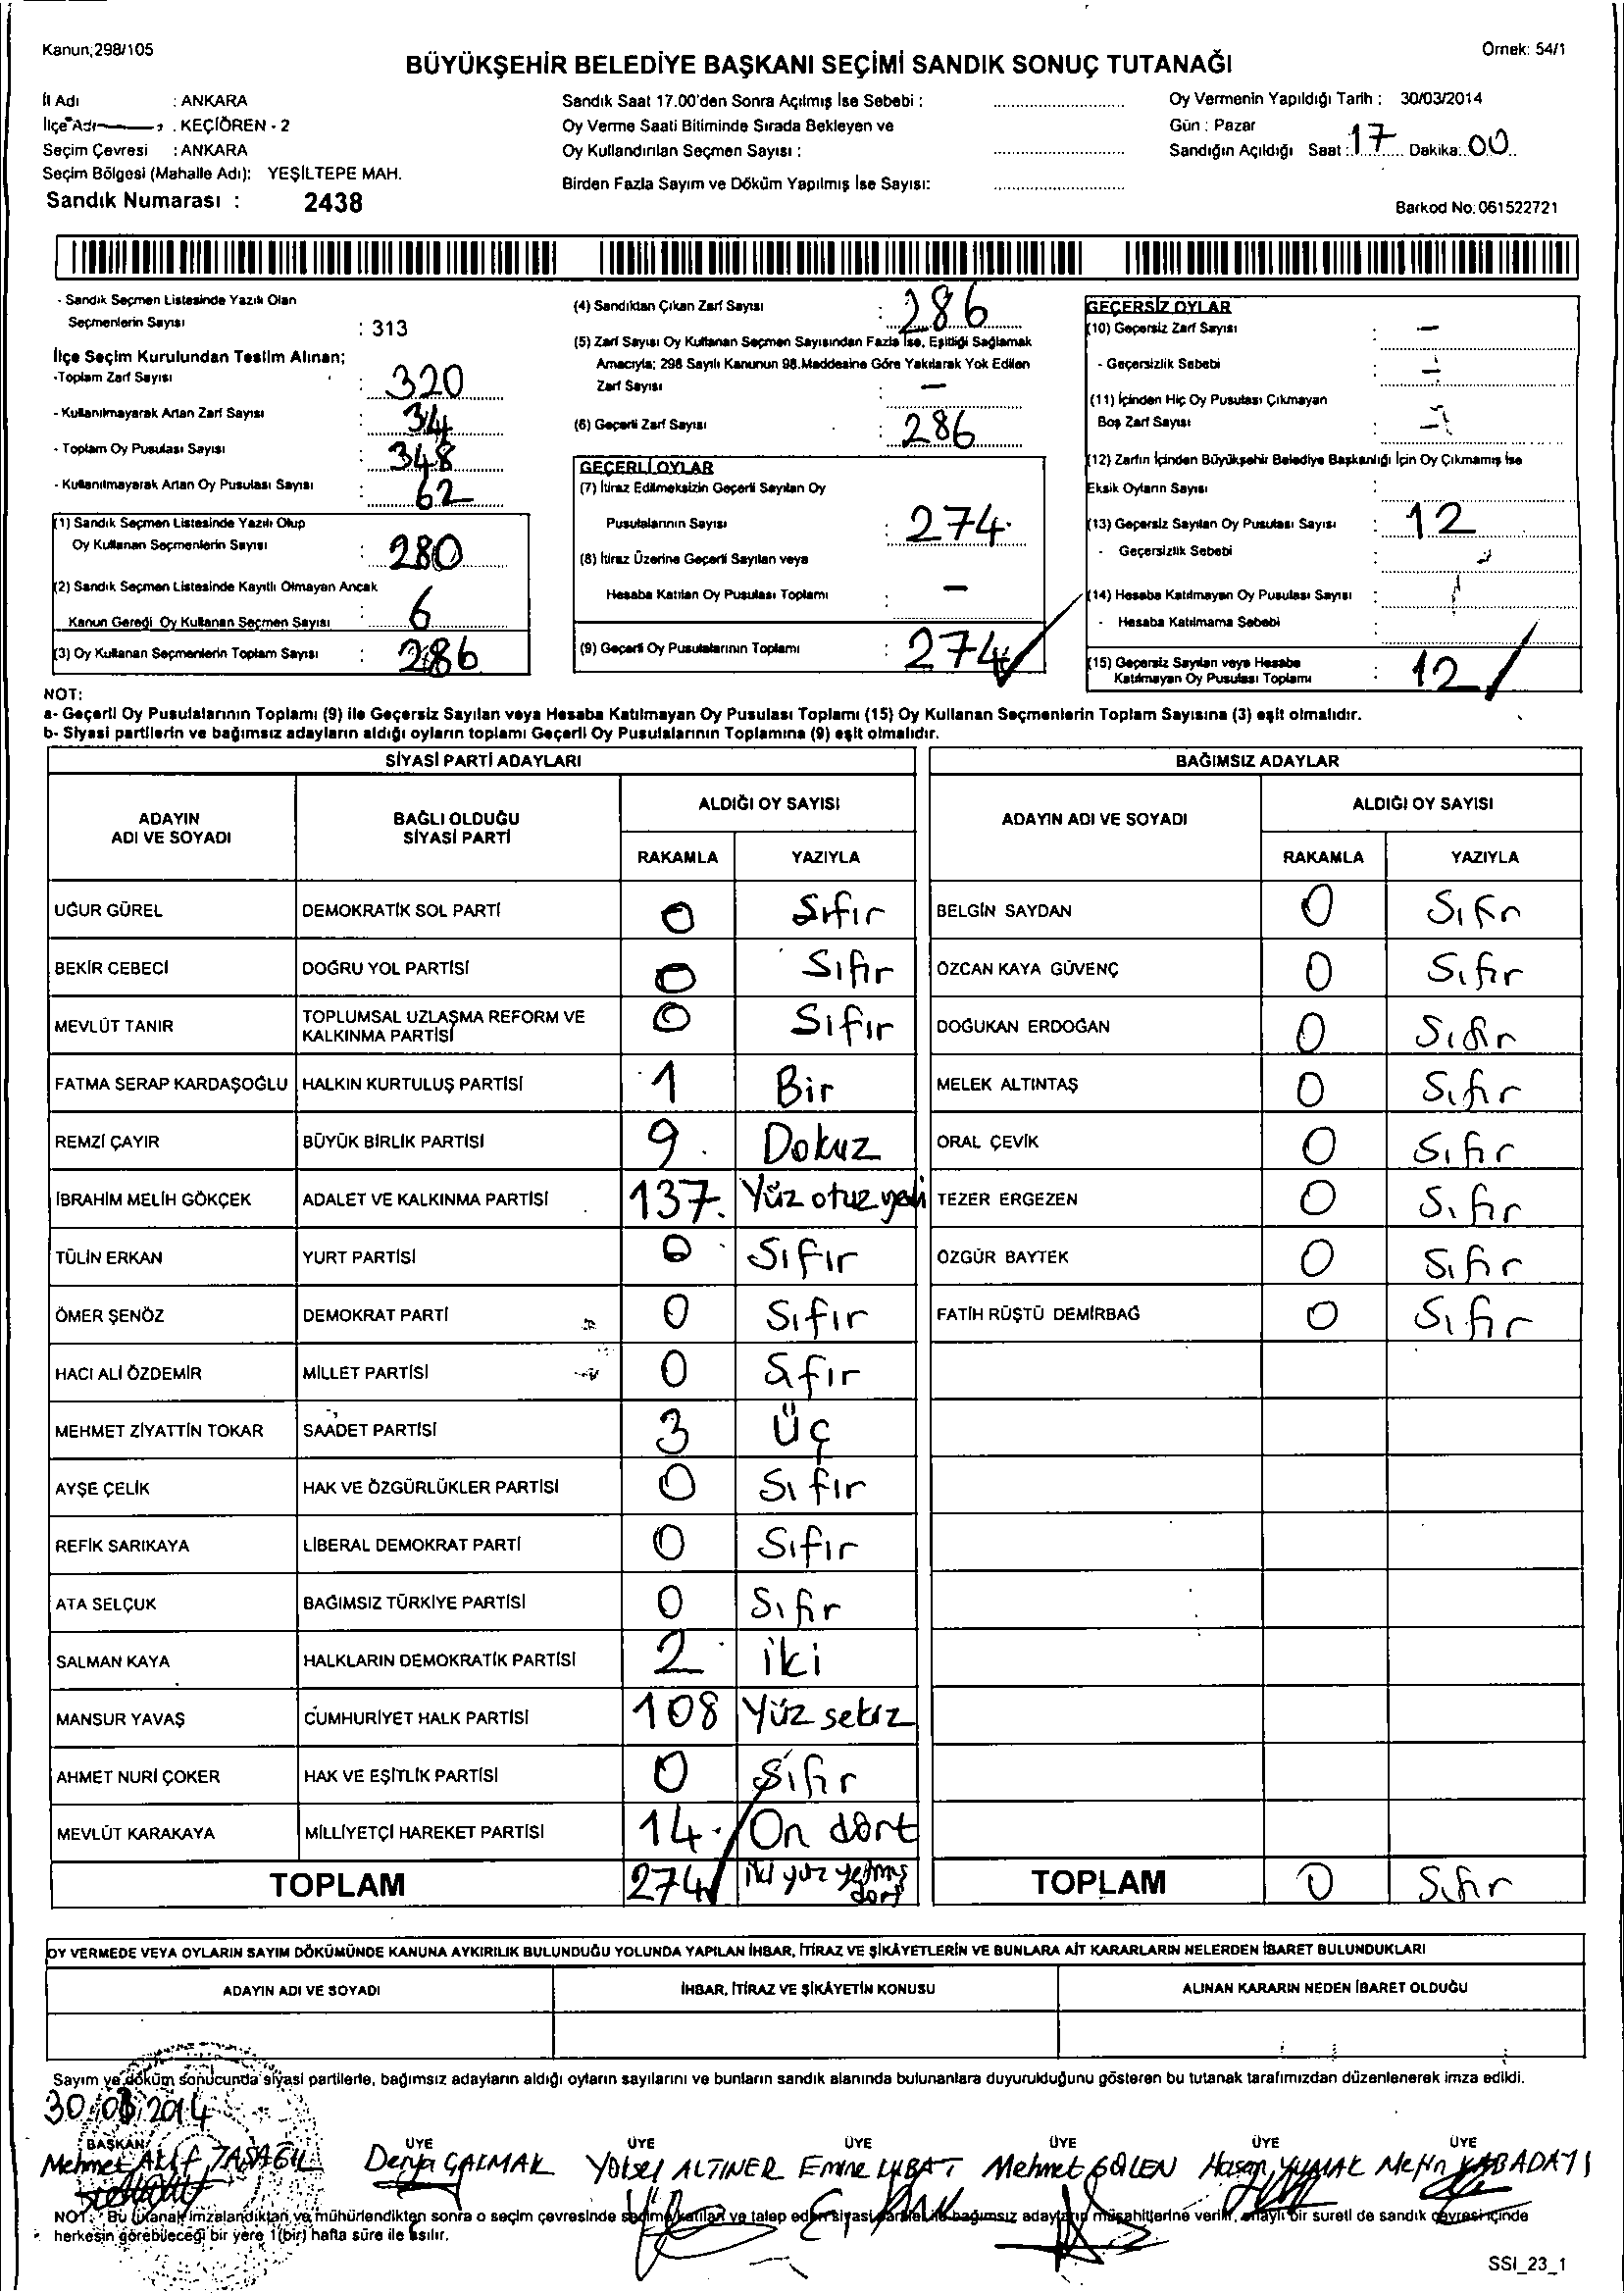 Kanun;298/105
Örnek: 54/1
BÜYÜKŞEHİR BELEDİYE BAŞKANI SEÇİMİ SANDIK SONUÇ TUTANAĞI
İl Adı : ANKARA
İlçe Adı : KEÇİÖREN - 2
Seçim Çevresi : ANKARA
Seçim Bölgesi (Mahalle Adı): YEŞİLTEPE MAH.
Sandık Numarası : 2438
Sandık Saat 17.00'den Sonra Açılmış İse Sebebi :
Oy Verme Saati Bitiminde Sırada Bekleyen ve
Oy Kullandırılan Seçmen Sayısı :
Birden Fazla Sayım ve Döküm Yapılmış İse Sayısı:
Oy Vermenin Yapıldığı Tarih : 30/03/2014
Gün : Pazar
Sandığın Açıldığı Saat : 17 Dakika: 00
Barkod No: 061522721
- Sandık Seçmen Listesinde Yazılı Olan
Seçmenlerin Sayısı : 313
İlçe Seçim Kurulundan Teslim Alınan;
-Toplam Zarf Sayısı : 320
- Kullanılmayarak Artan Zarf Sayısı : 34
- Toplam Oy Pusulası Sayısı : 348
- Kullanılmayarak Artan Oy Pusulası Sayısı : 62
(1) Sandık Seçmen Listesinde Yazılı Olup
Oy Kullanan Seçmenlerin Sayısı : 280
(2) Sandık Seçmen Listesinde Kayıtlı Olmayan Ancak
Kanun Gereği Oy Kullanan Seçmen Sayısı : 6
(3) Oy Kullanan Seçmenlerin Toplam Sayısı : 286
(4) Sandıktan Çıkan Zarf Sayısı : 286
(5) Zarf Sayısı Oy Kullanan Seçmen Sayısından Fazla İse, Eşitliği Sağlamak
Amacıyla; 298 Sayılı Kanunun 98.Maddesine Göre Yakılarak Yok Edilen
Zarf Sayısı : —
(6) Geçerli Zarf Sayısı : 286
GEÇERLİ OYLAR
(7) İtiraz Edilmeksizin Geçerli Sayılan Oy
Pusulalarının Sayısı : 274
(8) İtiraz Üzerine Geçerli Sayılan veya
Hesaba Katılan Oy Pusulası Toplamı : —
(9) Geçerli Oy Pusulalarının Toplamı : 274
GEÇERSİZ OYLAR
(10) Geçersiz Zarf Sayısı : —
- Geçersizlik Sebebi : —
(11) İçinden Hiç Oy Pusulası Çıkmayan
Boş Zarf Sayısı : —
(12) Zarfın İçinden Büyükşehir Belediye Başkanlığı İçin Oy Çıkmamış İse
Eksik Oyların Sayısı :
(13) Geçersiz Sayılan Oy Pusulası Sayısı : 12
- Geçersizlik Sebebi
(14) Hesaba Katılmayan Oy Pusulası Sayısı :
- Hesaba Katılmama Sebebi :
(15) Geçersiz Sayılan veya Hesaba
Katılmayan Oy Pusulası Toplamı : 12
NOT:
a- Geçerli Oy Pusulalarının Toplamı (9) ile Geçersiz Sayılan veya Hesaba Katılmayan Oy Pusulası Toplamı (15) Oy Kullanan Seçmenlerin Toplam Sayısına (3) eşit olmalıdır.
b- Siyasi partilerin ve bağımsız adayların aldığı oyların toplamı Geçerli Oy Pusulalarının Toplamına (9) eşit olmalıdır.
SİYASİ PARTİ ADAYLARI
ADAYIN ADI VE SOYADI
BAĞLI OLDUĞU SİYASİ PARTİ
ALDIĞI OY SAYISI
RAKAMLA YAZIYLA
UĞUR GÜREL DEMOKRATİK SOL PARTİ 0 Sıfır
BEKİR CEBECİ DOĞRU YOL PARTİSİ 0 Sıfır
MEVLÜT TANIR TOPLUMSAL UZLAŞMA REFORM VE KALKINMA PARTİSİ 0 Sıfır
FATMA SERAP KARDAŞOĞLU HALKIN KURTULUŞ PARTİSİ 1 Bir
REMZİ ÇAYIR BÜYÜK BİRLİK PARTİSİ 9 Dokuz
İBRAHİM MELİH GÖKÇEK ADALET VE KALKINMA PARTİSİ 137 Yüz otuz yedi
TÜLİN ERKAN YURT PARTİSİ 0 Sıfır
ÖMER ŞENÖZ DEMOKRAT PARTİ 0 Sıfır
HACI ALİ ÖZDEMİR MİLLET PARTİSİ 0 Sıfır
MEHMET ZİYATTİN TOKAR SAADET PARTİSİ 3 Üç
AYŞE ÇELİK HAK VE ÖZGÜRLÜKLER PARTİSİ 0 Sıfır
REFİK SARIKAYA LİBERAL DEMOKRAT PARTİ 0 Sıfır
ATA SELÇUK BAĞIMSIZ TÜRKİYE PARTİSİ 0 Sıfır
SALMAN KAYA HALKLARIN DEMOKRATİK PARTİSİ 2 iki
MANSUR YAVAŞ CUMHURİYET HALK PARTİSİ 108 Yüz sekiz
AHMET NURİ ÇOKER HAK VE EŞİTLİK PARTİSİ 0 Sıfır
MEVLÜT KARAKAYA MİLLİYETÇİ HAREKET PARTİSİ 14 On dört
TOPLAM 274 iki yüz yetmiş dört
BAĞIMSIZ ADAYLAR
ADAYIN ADI VE SOYADI
ALDIĞI OY SAYISI
RAKAMLA YAZIYLA
BELGİN SAYDAN 0 Sıfır
ÖZCAN KAYA GÜVENÇ 0 Sıfır
DOĞUKAN ERDOĞAN 0 Sıfır
MELEK ALTINTAŞ 0 Sıfır
ORAL ÇEVİK 0 Sıfır
TEZER ERGEZEN 0 Sıfır
ÖZGÜR BAYTEK 0 Sıfır
FATİH RÜŞTÜ DEMİRBAĞ 0 Sıfır
TOPLAM 0 Sıfır
OY VERMEDE VEYA OYLARIN SAYIM DÖKÜMÜNDE KANUNA AYKIRILIK BULUNDUĞU YOLUNDA YAPILAN İHBAR, İTİRAZ VE ŞİKÂYETLERİN VE BUNLARA AİT KARARLARIN NELERDEN İBARET BULUNDUKLARI
ADAYIN ADI VE SOYADI İHBAR, İTİRAZ VE ŞİKÂYETİN KONUSU ALINAN KARARIN NEDEN İBARET OLDUĞU
Sayım ve döküm sonucunda siyasi partilerle, bağımsız adayların aldığı oyların sayılarını ve bunların sandık alanında bulunanlara duyurulduğunu gösteren bu tutanak tarafımızdan düzenlenerek imza edildi.
30/03/2014
BAŞKAN ÜYE ÜYE ÜYE ÜYE ÜYE ÜYE
Mehmet Akif TAŞAĞIL Derya ÇALMAK Yüksel ALTINER Emine Mehmet GÜLEN Hasan Metin KABADAYI
NOT: Bu tutanak imzalandıktan ve mühürlendikten sonra o seçim çevresinde seçime katılan ve talep eden siyasi partiler ile bağımsız adayların müşahitlerine verilir, onaylı bir sureti de sandık çevresi içinde
herkesin görebileceği bir yere 1(bir) hafta süre ile asılır.
SSI_23_1